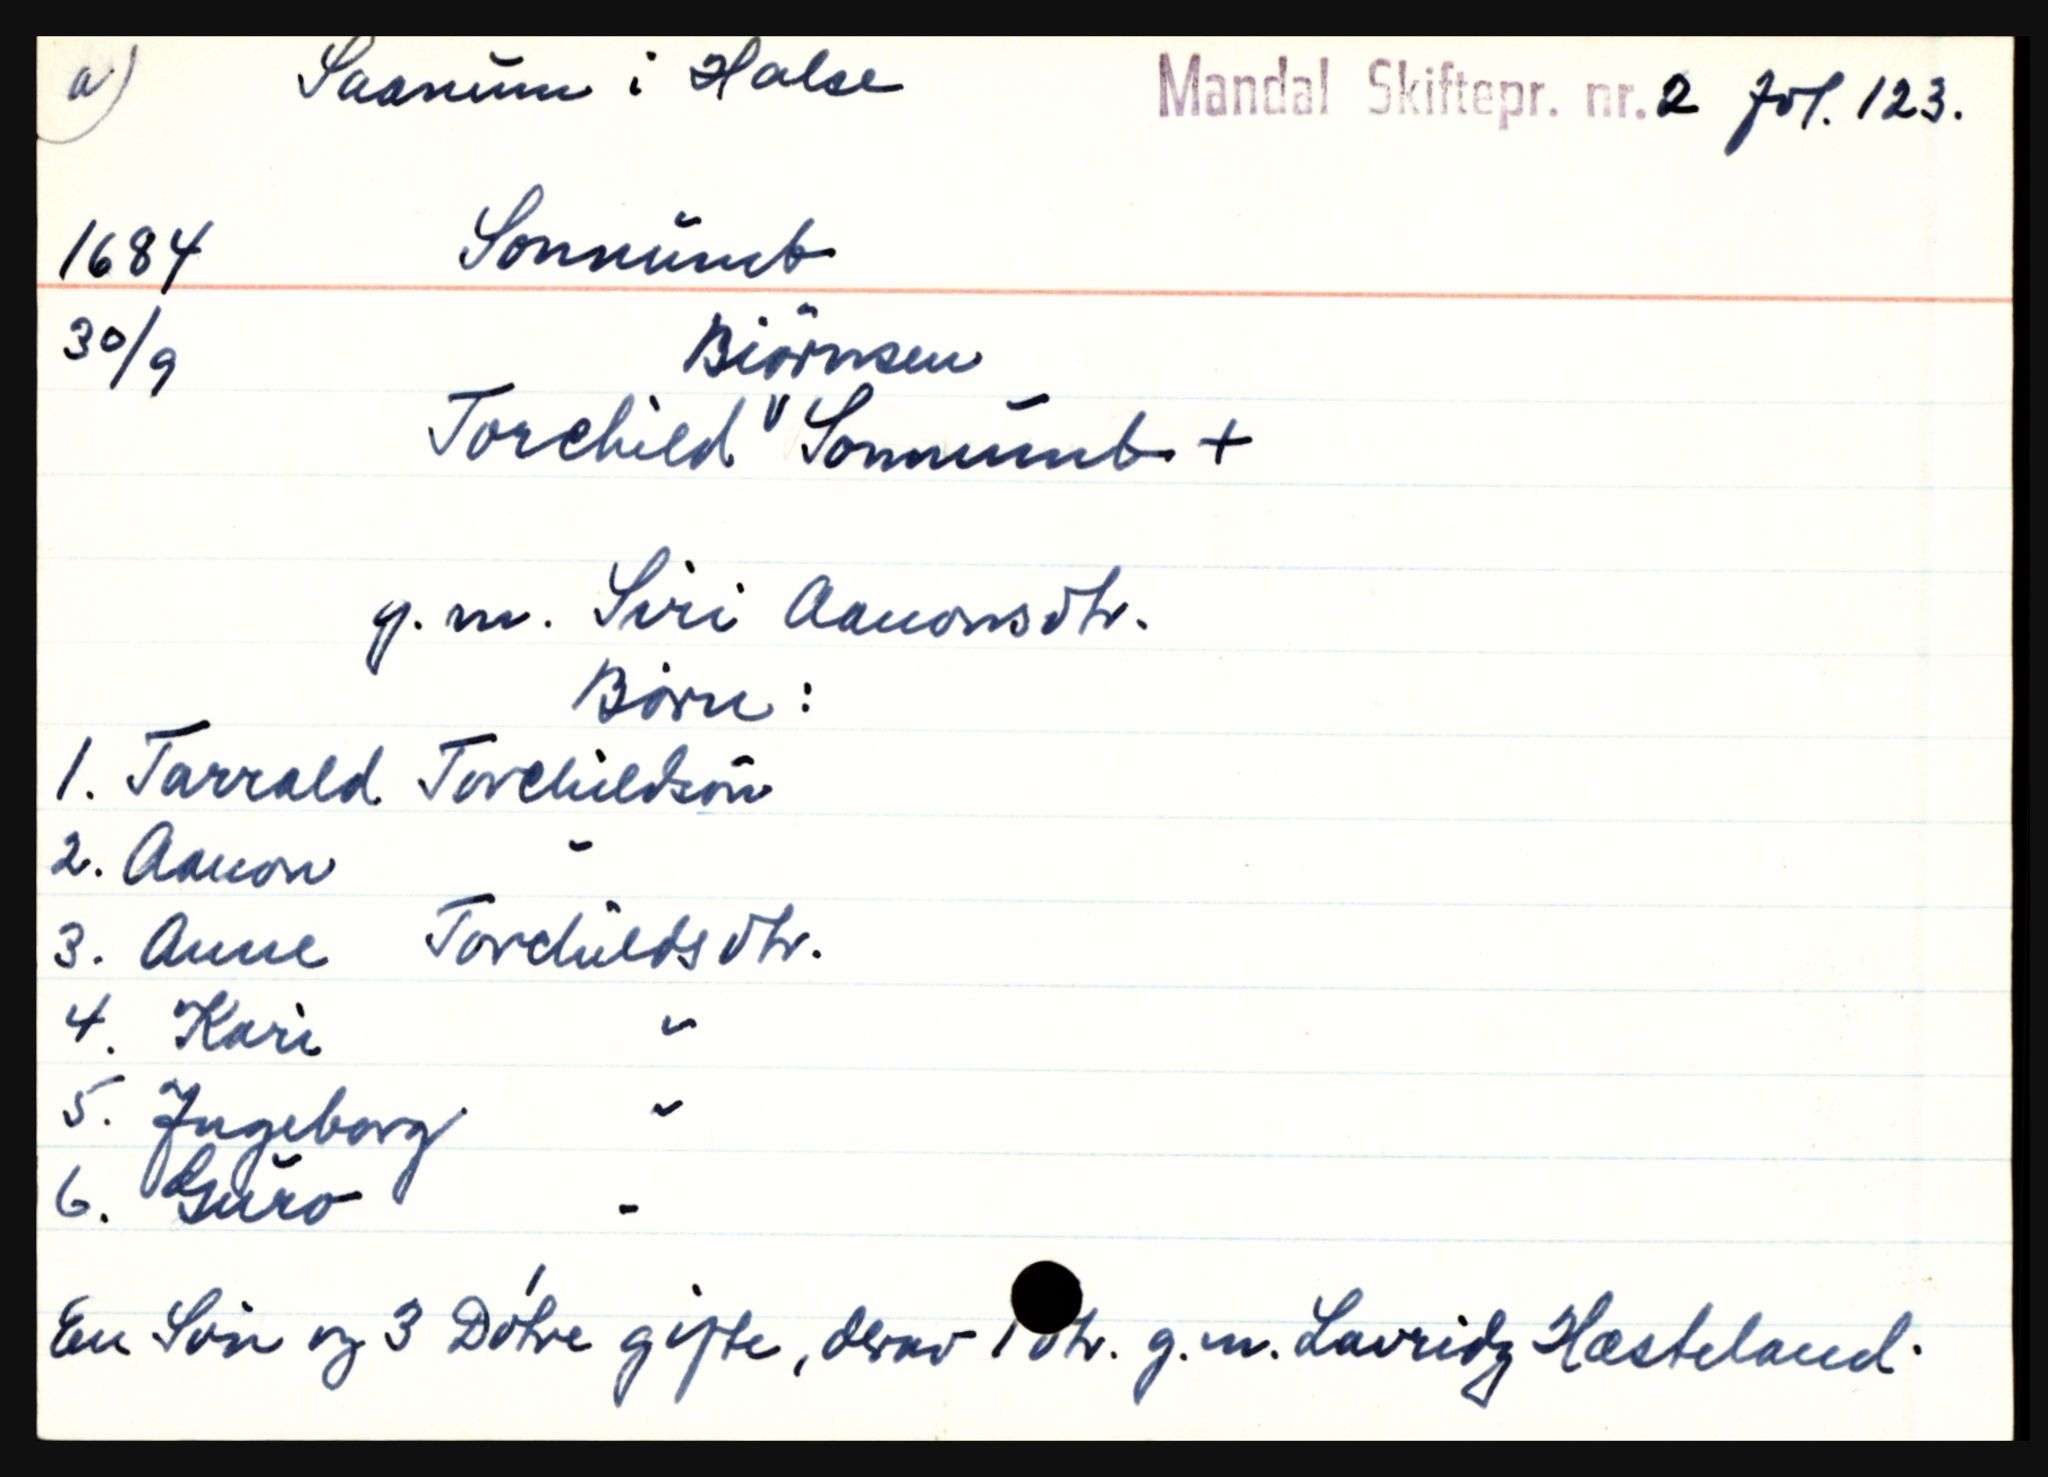 a) Saanum i Halse Mandal Skiftepr. nr. 2 fol. 123.
1684 Sonnumb
30/9 Biörnsen
Torchild v Sonnumb +
g. m. Siri Aanonsdtr.
Børn:
1. Tarrald Torchildsøn
2. Aanon "
3. Anne Torchildsdtr.
4. Kari "
5. Ingeborg "
6. Guro "
En Søn og 3 Døtre gifte, derav 1 dtr. g. m. Lauridz Hæsteland.